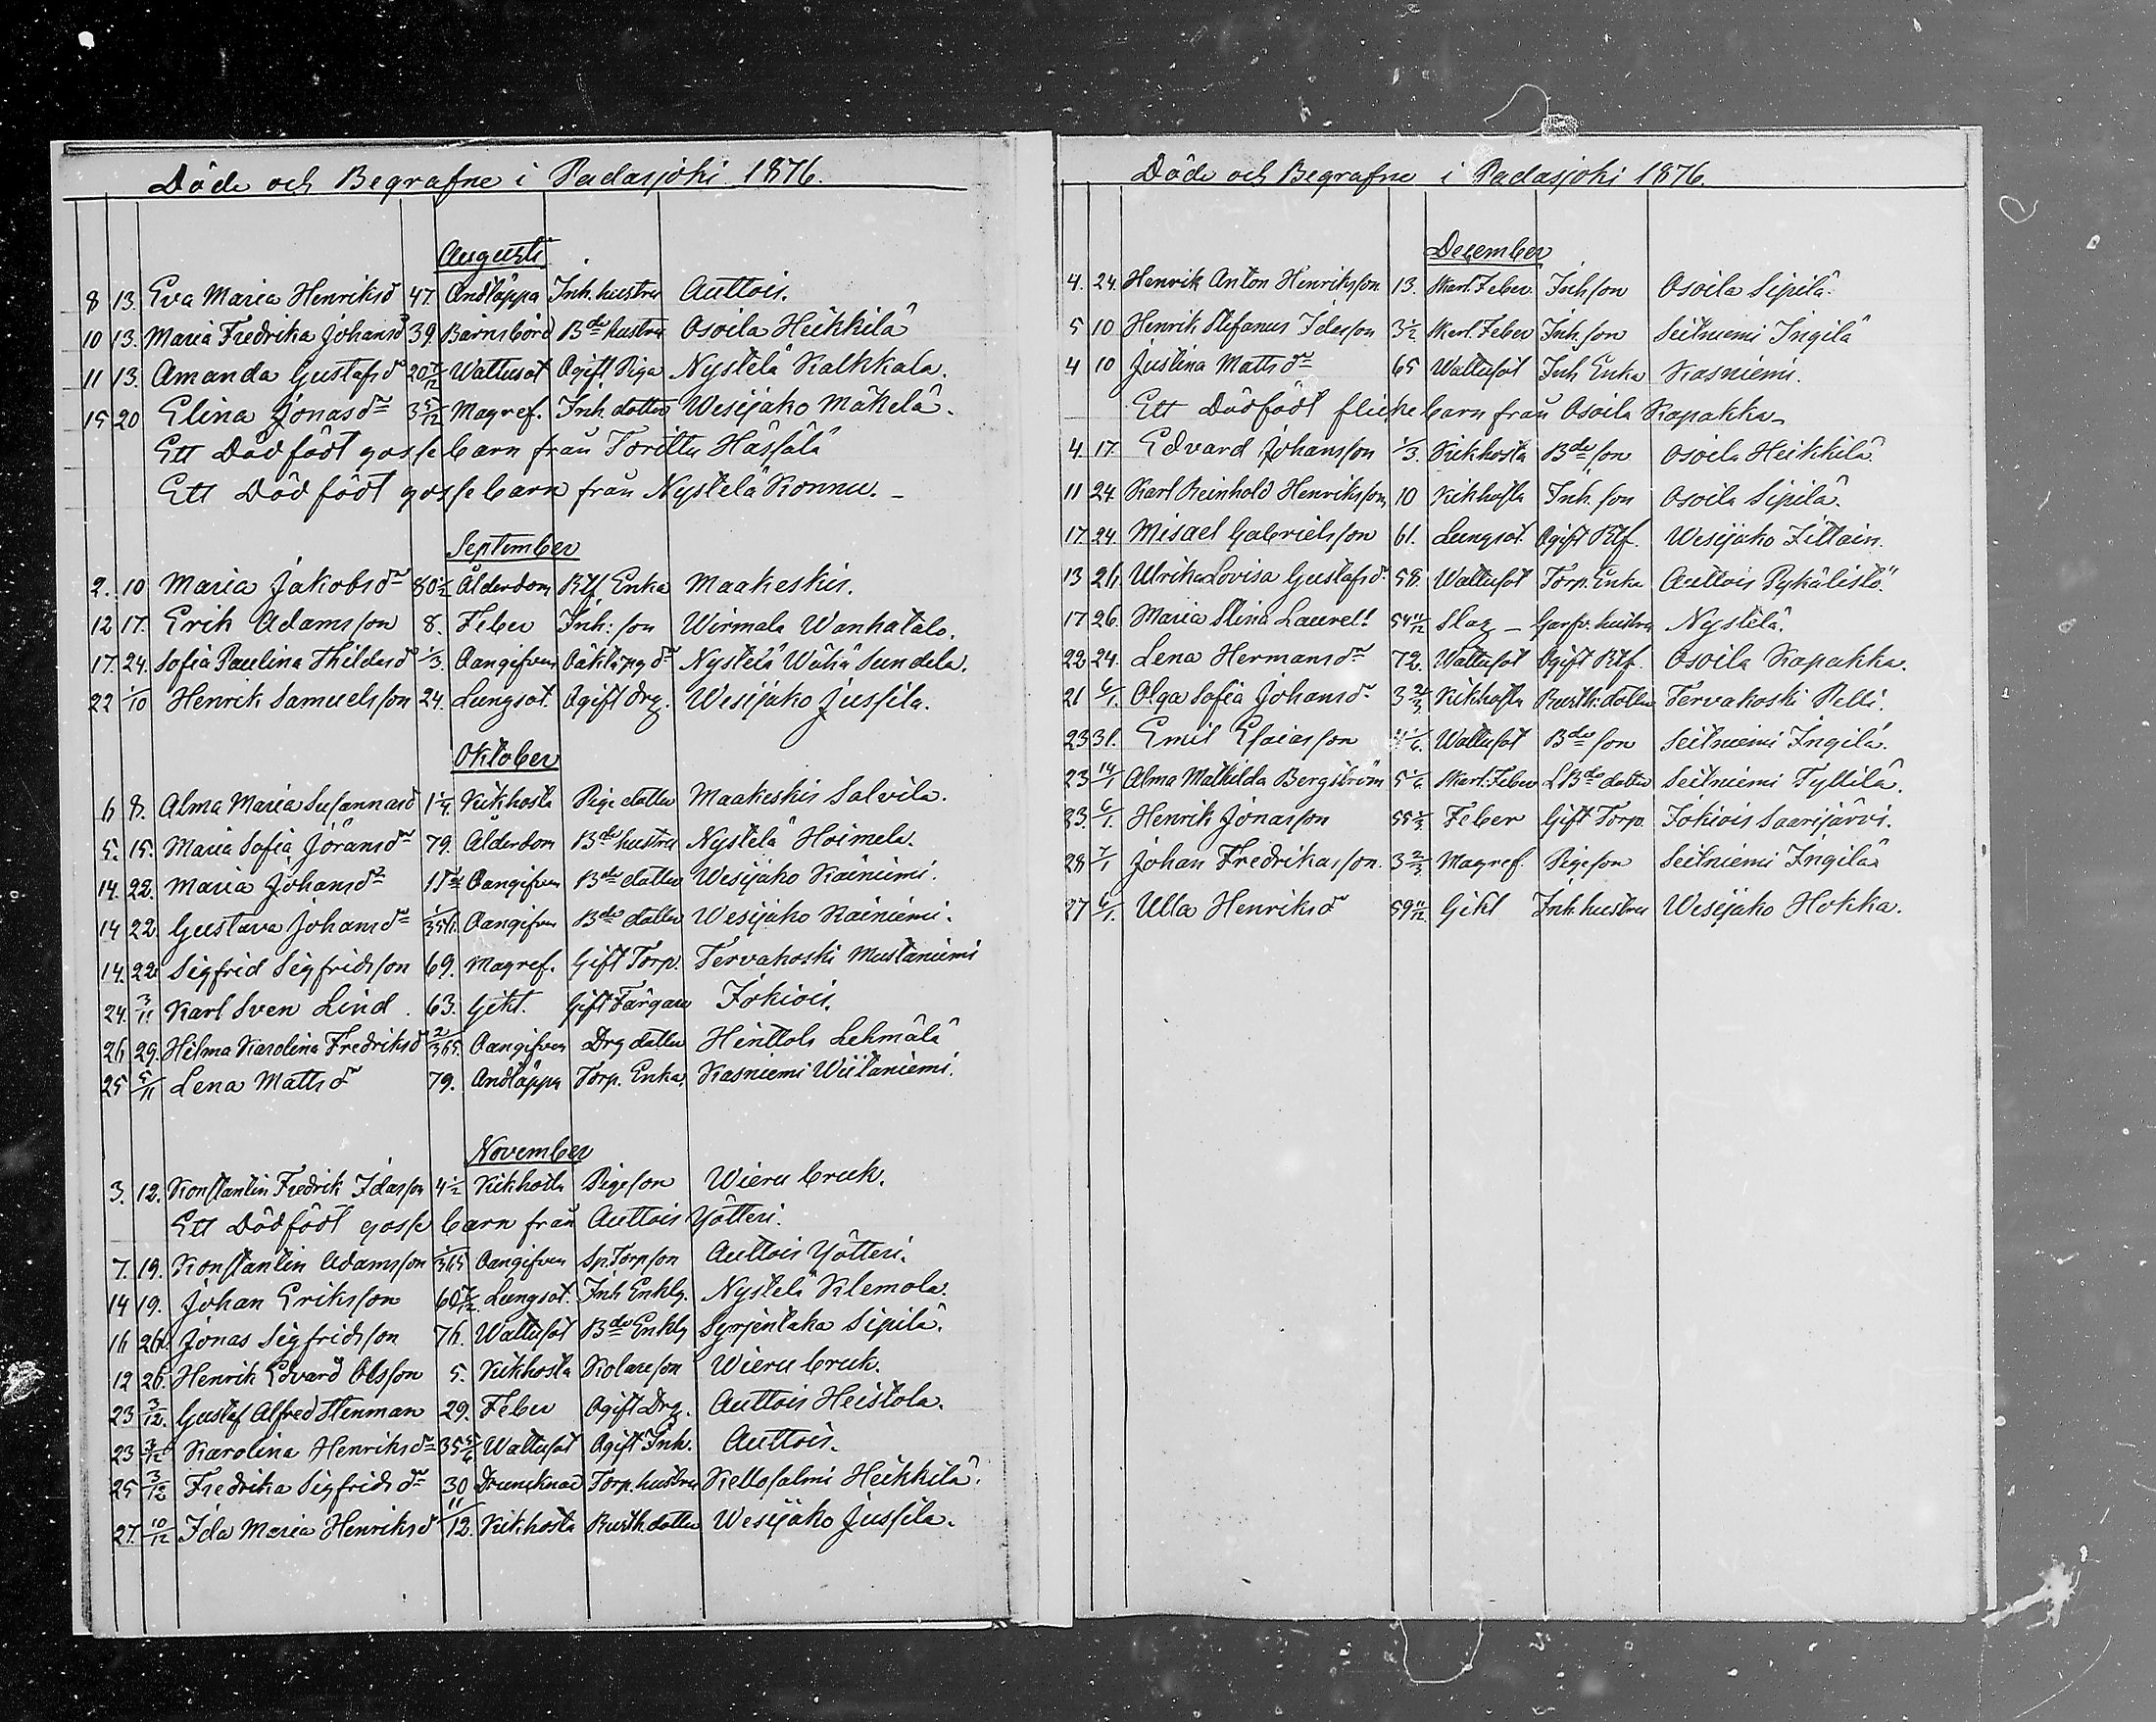 Döde och Begrafne i Padasjoki 1876.
Augusti
8 13. Eva Maria Henriksdr 47. Andtäppa Inh. hustru Auttois.
10 13. Maria Fredrika Johansdr 39. Barnsbörd Bde hustru Osoila Heikkilä
11 13. Amanda Gustafsdr 20 7/12 Wattusot Ogift Piga Nystelä Kalkkala.
15 20 Elina Jonasdr 3 5/12 Magref. Inh. dotter Wesijako Mäkelä.
Ett Dödfödt gosse barn från Torittu Hässälä
Ett Dödfödt gosse barn från Nystelä Konnu.
September
2. 10 Maria Jakobsdr 80 1/2 Ålderdom Rtf. Enka Maakeskis.
12 17. Erik Adamsson 8. Feber Inh: son Wirmala Wanhatalo.
17. 24. Sofia Paulina Thildasdr 1/3. Oangifven Oäkta pg dr Nystelä Wähä Sundela.
22 1/10 Henrik Samuelsson 24. Lungsot. Ogift Drg. Wesijako Jussila.
Oktober
6 8. Alma Maria Susannasdr 1 1/4. Kikhosta Pige dotter Maakeskis Salvila.
5. 15. Maria Sofia Göransdr 79. Ålderdom Bde hustru Nystelä Hoimela.
14. 22. Maria Johansdr Oangifven Bde dotter Wesijako Käiniemi.
14 22. Gustava Johansdr Oangifven Bde dotter Wesijako Käiniemi.
14. 22 Sigfrid Sigfridsson 69. Magref. Gift Torp. Tervakoski Mustaniemi
24. 3/11 Karl Sven Lind. 63. Gikt. Gift Färgare Jokiois.
26 29. Hilma Karolina Fredriksdr 2/365. Oangifven Drg dotter Henttols Lehmälä
25 5/11 Lena Mattsdr 79. Andtäppa Torp. Enka Kasniemi Wiitaniemi.
November
3. 12. Konstantin Fredrik Idasson 4 1/2 Kikhosta Pigeson Wieru bruk.
Ett Dödfödt gosse barn från Auttois Yötteri.
7. 19. Konstantin Adamsson 1/365 Oangifven Sp. Torpson Auttois Yötteri.
14 19. Johan Eriksson 60 7/12. Lungsot. Inh Enklg. Nystelä Klemola.
16 26. Jonas Sigfridsson 76. Wattusot Bde Enklg Syrjentaka Sipilä.
12 26. Henrik Edvard Olsson 5. Kikhosta Kolareson Wieru bruk.
23 3/12. Gustaf Alfred Stenman 29. Feber Ogift Drg. Auttois Heistola.
23 3/12 Karolina Henriksdr 35 5/6 Wattusot Ogift Inh. Auttois.
25 3/12 Fredrika Sigfridsdr 30 Drunknad Torp. hustru Kellosalmi Heikkilä.
27. 10/12 Ida Maria Henriksdr 11/12. Kikhosta Rusth. dotter Wesijako Jussila.
Döde och Begrafne i Padasjoki 1876.
December
4. 24. Henrik Anton Henriksson 13. Skarl. Feber Inh son Osoila Sipilä.
5 10 Henrik Stefanus Idasson 3 1/2 Skarl. Feber Inh. son Seitniemi Ingilä
4 10 Justina Mattsdr 65 Wattusot Inh Enka Kasniemi.
Ett Dödfödt flicke barn från Osoila Kapakka
4. 17. Edvard Johansson 1/3. Kikhosta Bde son Osoila Heikkilä
11 24. Karl Reinhold Henriksson 10 Kikhosta Inh. son Osoila Sipilä.
17. 24. Misael Gabrielsson 61. Lungsot. Ogift Rtf. Wesijako
13 26 Ulrika Lovisa Gustafsdr. 58. Wattusot Torp. Enka Auttois Pykälistö.
17 26. Maria Stina Laurell 54 11/12 Slag Garfv. hustru Nystelä.
22 24. Lena Hermansdr 72. Wattusot Ogift Rtf. Osoila Kapakka.
21 6/1. Olga Sofia Johansdr 3 2/3 Kikhosta Rusth: dotter Tervakoski Pelli.
23 31. Emil Esaiasson Wattusot Bde son Seitniemi Ingilä.
23 14/1 Alma Mathilda Bergström 5 1/6 Skarl: Feber L Bde dotter Seitniemi Tyllilä.
23. 6/1. Henrik Jonasson 55 Feber Gift Torp. Jokiois Saarijärvi.
28 7/1 Johan Fredrikasson. 3 2/3 Magref. Pigeson Seitniemi Ingilä
27 6/1. Ulla Henriksdr 59 11/12. Gikt Inh. hustru Wesijako Hokka.